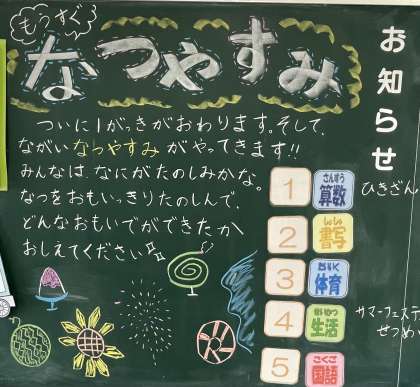 もうすぐ
なつやすみ
ついに1がっきがおわります。そして、
ながいなつやすみがやってきます!!
みんなは、なにがたのしみかな。
なつをおもいっきりたのしんで、
どんなおもいでができたか
おしえてください
お知らせ
1 さんすう 算数 ひきざん
2 しょしゃ 書写
3 たいいく 体育
4 せいかつ 生活 サマーフェステ
せつめい
5 こくご 国語